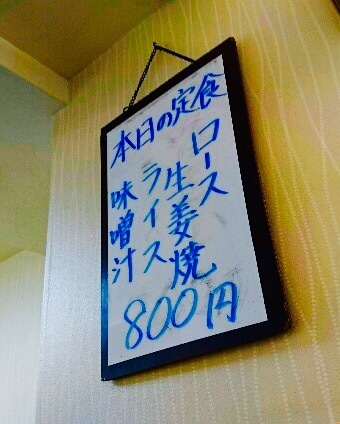 本日の定食
ロース
生姜焼
ライス
味噌汁
800円